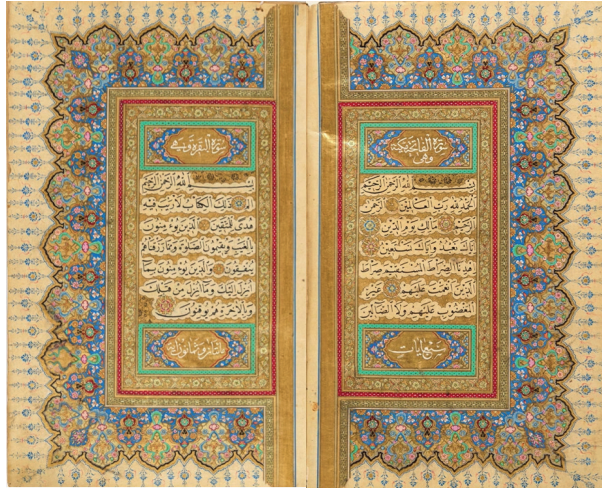 سورة الفاتحة مكية
وهي
بسم الله الرحمن الرحيم
الحمد لله رب العالمين الرحمن
الرحيم مالك يوم الدين
اياك نعبد واياك نستعين
اهدنا الصراط المستقيم صراط
الذين انعمت عليهم غير
المغضوب عليهم ولا الضالين
سبع آيات
سورة البقرة وهي
بسم الله الرحمن الرحيم
الم ذلك الكتاب لا ريب فيه
هدى للمتقين الذين يؤمنون
بالغيب ويقيمون الصلوة ومما رزقناهم
ينفقون والذين يؤمنون بما
انزل اليك وما انزل من قبلك
وبالآخرة هم يوقنون